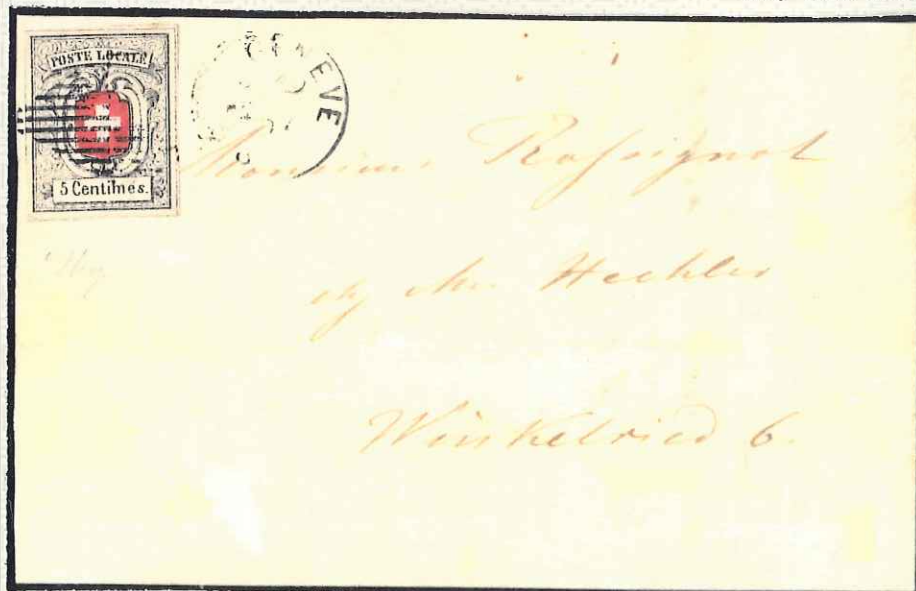 POSTE LOCALE
5 Centimes.
GENEVE
Monsieur Rossignol
chez Mr. Hechler
Winkelried 6.